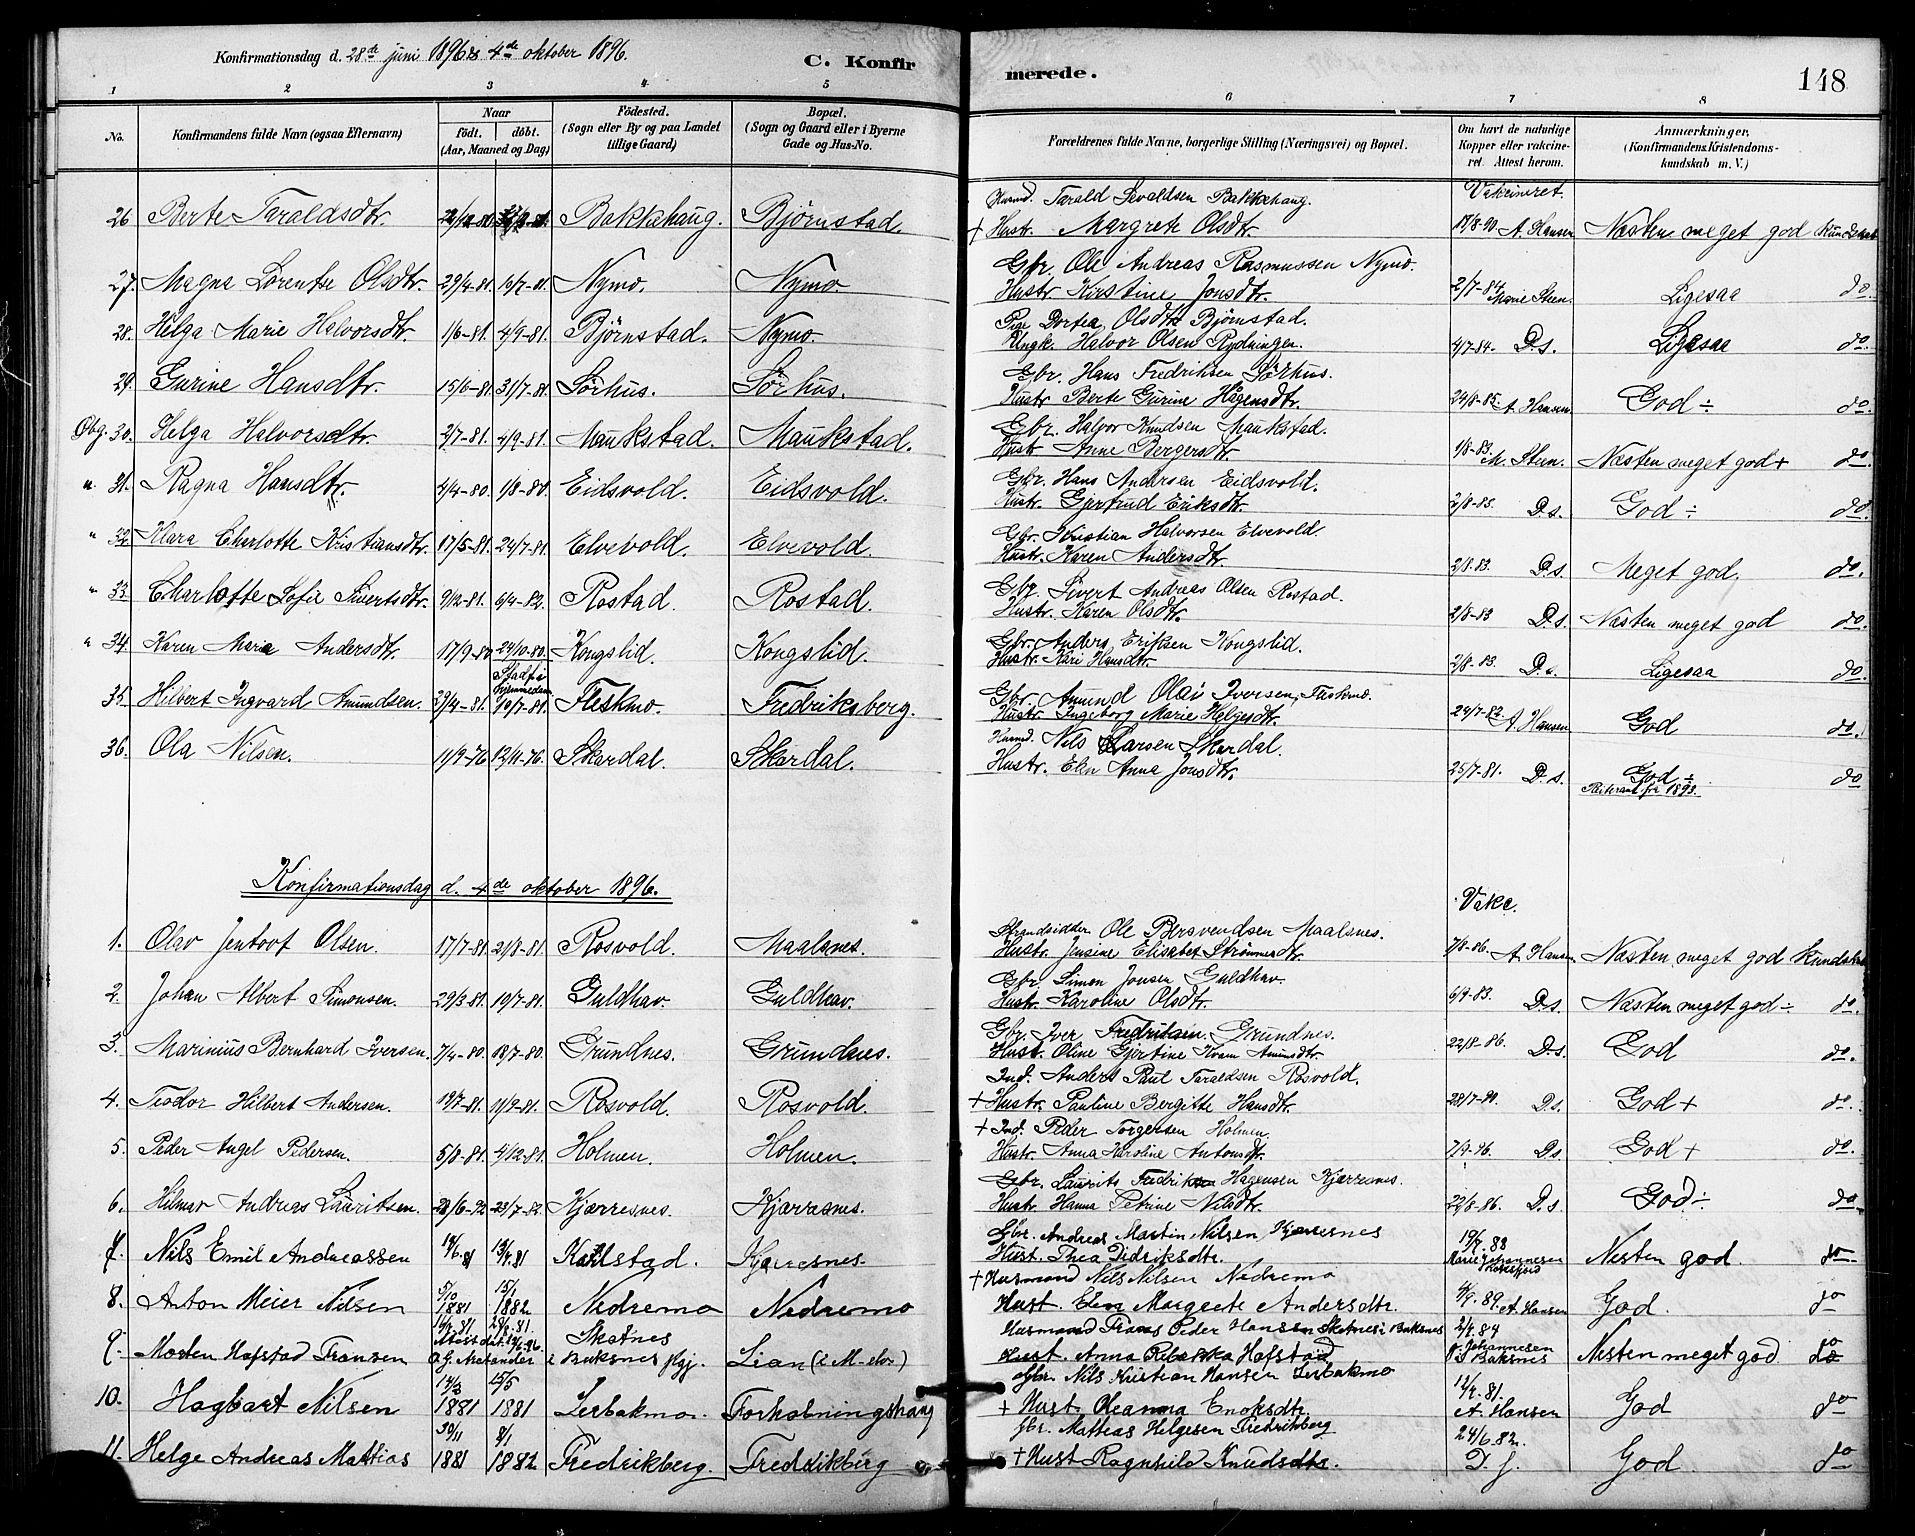 Konfirmationsdag d. 28de juni 1896 & 4de oktober 1896.
C. Konfirmerede.
148
1 2 3 4 5 6 7 8
No. Konfirmandens fulde Navn (ogsaa Efternavn) Naar født. døbt. (Aar, Maaned og Dag) Fødested. (Sogn eller By og paa Landet tillige Gaard) Bopæl. (Sogn og Gaard eller i Byerne Gade og Hus-No. Forældrenes fulde Navne, borgerlige Stilling (Næringsvei) og Bopæl. Om havt de naturlige Kopper eller vakcineret. Attest herom. Anmærkninger. (Konfirmandens Kristendomskundskab m. V.)
Husmd. Tarald Sivaldsen Bakkehaug. Vakcineret.
26 Berte Taraldsdtr. Bakkehaug. Bjørnstad. + Hustr. Margrete Olsdtr. 17/8-90. A. Hansen Næsten meget god
Gbr. Ole Andreas Rasmussen Nymo.
27. Magna Lorentse Olsdtr. 29/4-81. 10/7-81. Nymo. Nymo. Hustr. Kirstine Jonsdtr. 2/7-84. Marie Steen. Ligesaa do.
Pige Dortea Olsdtr Bjørnstad.
28. Helga Marie Halvorsdtr. 1/6-81. 4/9-81. Bjørnstad. Nymo. Ungk. Halvor Olsen Rydningen. 4/7-84. D.s. Ligesaa do.
Gbr. Hans Fredriksen Sørhus.
29. Gurine Hansdtr. 15/6-81. 31/7-81. Sørhus. Sørhus. Hustr Berte Gurine Hågensdtr. 24/8-85. A. Hansen God ÷ do.
Gbr. Halvor Knudsen Maukstad.
Obg. 30. Helga Halvorsdtr. 2/7-81. 4/9-81. Maukstad. Maukstad. Hustr Anne Bergersdtr 1/8-83. M. Steen. Næsten meget god + do.
Gbr. Hans Andersen Eidsvold.
" 31. Ragna Hansdtr. 4/4-80. 1/8-80. Eidsvold. Eidsvold. Hustr. Gjertrud Eriksdtr. 2/8-83. D.s. God ÷ do.
Gbr. Kristian Halvorsen Elvevold.
" 32. Klara Charlotte Kristiansdtr. 17/5-81. 24/7-81. Elvevold. Elvevold. Hustr. Karen Andersdtr. 2/8-83. D.s. Meget god. do.
Gbr. Sivert Andreas Olsen Rostad.
" 33. Charlotte Sofie Sivertsdtr. 9/12-81. 6/4-82. Rostad. Rostad. Hustr. Karen Olsdtr. 2/8-83 D.s. Næsten meget god do.
Gbr. Anders Eriksen Kongslid.
" 34. Karen Maria Andersdtr. 17/9-80 24/10-80. Kongslid. Kongslid. Hustr. Kari Hansdtr. 2/8-83. D.s. Ligesaa do.
Gbr. Amund Olai Iversen, Fleskmo.
35. Hilbert Ingvard Amundsen. 29/4-81. 10/7-81. Fleskmo. Fredriksberg. Hustr. Ingeborg Marie Helgesdtr. 24/7-82. A. Hansen God do.
Husmd. Nils Larsen Skardal.
36. Ola Nilsen. 11/9-76 12/11-76. Skardal. Skardal. Hustr. Elen Anna Jonsdtr. 25/7-81. D.s. God ÷ do
fra 1893.
Konfirmationsdag d. 4de oktober 1896.
Vakc.
Strandsidder Ole Maalsnes.
1. Olav Jentoft Olsen. 17/7-81. 21/8-81. Rosvold. Maalsnes. Hustr. Jensine Elisabet 7/8-86. A. Hansen Næsten meget god
Gbr. Simon Jonsen Guldhav.
2. Johan Albert Simonsen. 29/3-81. 10/7-81. Guldhav. Guldhav. Hustr. Karoline Olsdtr. 6/9-83. D.s. Næsten meget god ÷ do.
Gbr. Iver Fredriksen Grundnes.
3. Marinius Bernhard Iversen. 7/4-80. 18/7-80. Grundnes. Grundnes. Hustr. Oline Gjertine 22/8-86. D.s. God do.
Ind. Anders Paul Taraldsen Rosvold.
4. Teodor Hilbert Andersen. 19/7-81. 11/9-81. Rosvold. Rosvold. + Hustr. Pauline Bergitte Hansdtr. D.s. God + do.
+ Ind. Peder Torgersen Holmen.
5. Peder Angel Pedersen. 5/8-81. 4/12-81. Holmen. Holmen. Hustr. Anna Karoline Antonsdtr. 7/9-96. D.s. God + do.
Gbr. Laurits Fredrik Hagensen Kjærresnes.
6. Hilmar Andreas Lauritsen. Kjærresnes. Kjærresnes. Hustr. Hanna Petrine Nilsdtr. 22/8-86. D.s God ÷ do.
Gbr. Andreas Martin Nilsen, Kjærresnes
7. Nils Emil Andreassen Karlstad. Kjærresnes. Hust. Thea Didriksdtr. 19/7.88 Marie Johannesen Nesten god. do
+ Husmand Nils Nilsen Nedremo
8. Anton Meier Nilsen 5/10 1881 15/1 1882 Nedremo Nedremo Hust. Elen Margrete Andersdtr. 4/9.89. A. Hansen God. do
Husmand Frans Peder Hansen Skatnes i Buksnes
9. Morten Hofstad Fransen Skatnes i Buksnes Lian (i M-elv) Hust. Anna Rebekka Hofstad Johannesen Buksnes Nesten meget god do
Gbr. Nils Kristian Hansen Lerbakmo
10. Hagbart Nilsen 14/3 1881 15/5 1881 Lerbakmo. Forhobningshaug + Hust. Oleanna Enoksdtr. A. Hansen God do
Gbr. Mattias Helgesen Fredrikberg
11. Helge Andreas Mattias 30/11 1881 8/1 1882 Fredrikberg. Fredrikberg + Hust Ragnhild Knudsdtr. 24/6.82. D.s. God. do